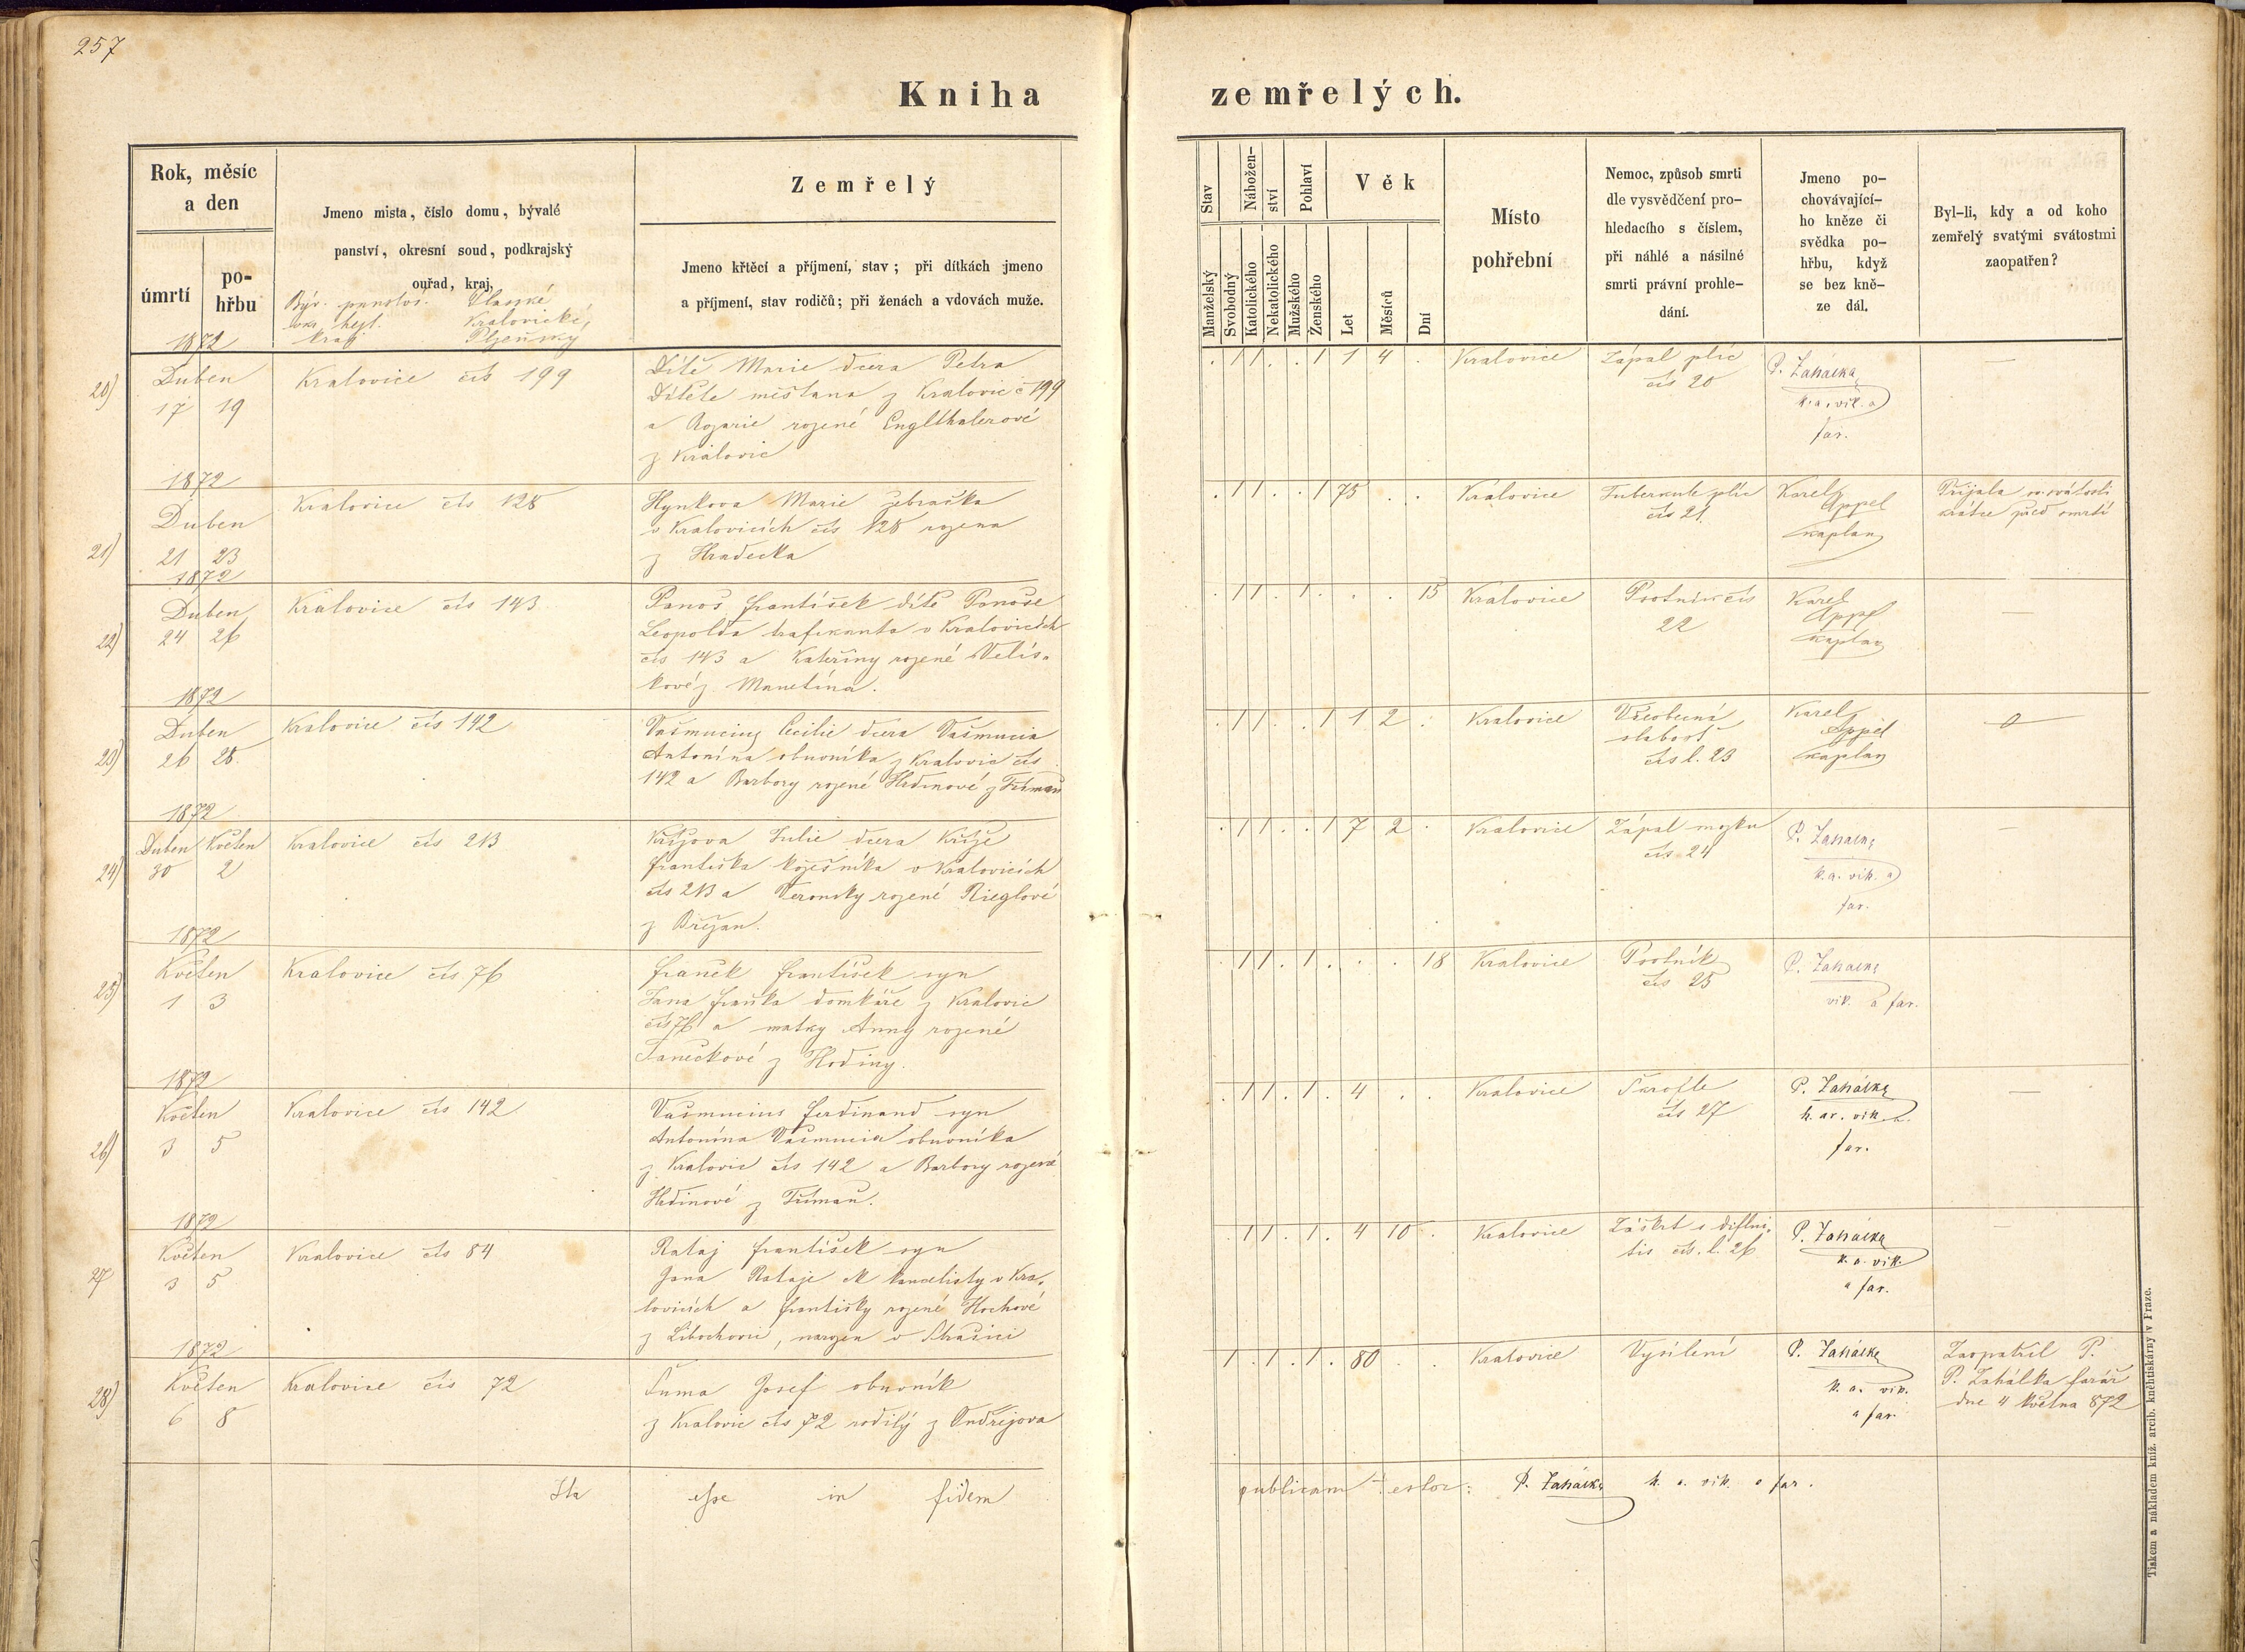 257
Kniha zemřelých.
Rok, měsíc a den
úmrtí
pohřbu
Jmeno mista, číslo domu, bývalé
panství, okresní soud, podkrajský
ouřad, kraj,
Býv. panství
Kralovické,
kraj Plzeňský
Zemřelý
Jmeno křtěcí a příjmení, stav; při dítkách jmeno
a příjmení, stav rodičů; při ženách a vdovách muže.
Stav
Manželský
Svobodný
Nábožen-
ství
Katolického
Nekatolického
Pohlaví
Mužského
Ženského
Věk
Let
Měsíců
Dní
Místo
pohřební
Nemoc, způsob smrti
dle vysvědčení pro-
hledacího s číslem,
při náhlé a násilné
smrti právní prohle-
dání.
Jmeno po-
chovávající-
ho kněze či
svědka po-
hřbu, když
se bez kně-
ze dál.
Byl-li, kdy a od koho
zemřelý svatými svátostmi
zaopatřen?
20)
1872
Duben
17 19
Kralovice čís 199
Dítě Marie dcera Petra
Dítěte měšťana z Kralovic č 199
a Rozarie rozené Englthalerové
z Kralovic
. 1 1 . . 1 1 4 .
Kralovice
Zápal plic
čís 20
P. Zahálka
k. a. vik. a
far.
—
21)
1872
Duben
21 23
Kralovice čís 128
Hynkova Marie žebračka
v Kralovicích čís 128 rozena
z Hradecka
. 1 1 . . 1 75 . .
Kralovice
Tuberkule plic
čís 21.
Karel
Appel
kaplan
Přijala sv. svátosti
krátce před smrtí
22)
1872
Duben
24 26
Kralovice čís 143
Panoš František dítě Panoše
Leopolda trafikanta v Kralovicích
čís 143 a Kateřiny rozené Velís-
kové z Manetína.
. 1 1 . 1 . . . 15
Kralovice
Psotník čís
22
Karel
Appel
kaplan
—
23)
1872
Duben
26 28.
Kralovice čís 142
Vašmucius Cecilie dcera Vašmucia
Antonína obuvníka z Kralovic čís
142 a Barbory rozené Hrdinové z
. 1 1 . . 1 1 2 .
Kralovice
Všeobecná
slabost
čís l. 23
Karel
Appel
kaplan
24)
1872
Duben Květen
30 2
Kralovice čís 213
Křížova Julie dcera Kříže
Františka kožešníka v Kralovicích
čís 213 a Veroniky rozené Rieglové
z Břežan.
. 1 1 . . 1 7 2 .
Kralovice
Zápal mozku
čís 24
P. Zahálka
k. a. vik. a
far.
—
25)
1872
Květen
1 3
Kralovice čís 76
Franěk František syn
Jana Fraňka domkáře z Kralovic
čís 76 a matky Anny rozené
Janečkové z Hodiny.
. 1 1 . 1 . . . 18
Kralovice
Psotník
čís 25
P. Zahálka
vik. a far.
26)
1872
Květen
3 5
Kralovice čís 142
Vašmucius Ferdinand syn
Antonína Vašmucia obuvníka
z Kralovic čís 142 a Barbory rozené
Hrdinové z
. 1 1 . 1 . 4 . .
Kralovice
Škrofle
čís 27
P. Zahálka
k. ar. vik a.
far.
—
27
1872
Květen
3 5
Kralovice čís 84
Rataj František syn
Jana Rataje kancelisty v Kra-
lovicích a Františky rozené Hochové
z Libochovic, narozen v
. 1 1 . 1 . 4 10 .
Kralovice
Záškrt s diftni-
tis čís. l. 26
P. Zahálka
k. a. vik.
a far.
—
28)
1872
Květen
6 8
Kralovice čís 72
Šuma Josef obuvník
z Kralovic čís 72 rodilý z Ondřejova
1 . 1 . 1 . 80 . .
Kralovice
Vysílení
P. Zahálka
k. a. vik.
a far.
Zaopatřil P.
P. Zahálka farář
dne 4 května 872
Ita esse in fidem publicam testor: P. Zahálka k. a. vik. a far.
Tiskem a nákladem kníž. arcib. kněhtiskárny v Praze.